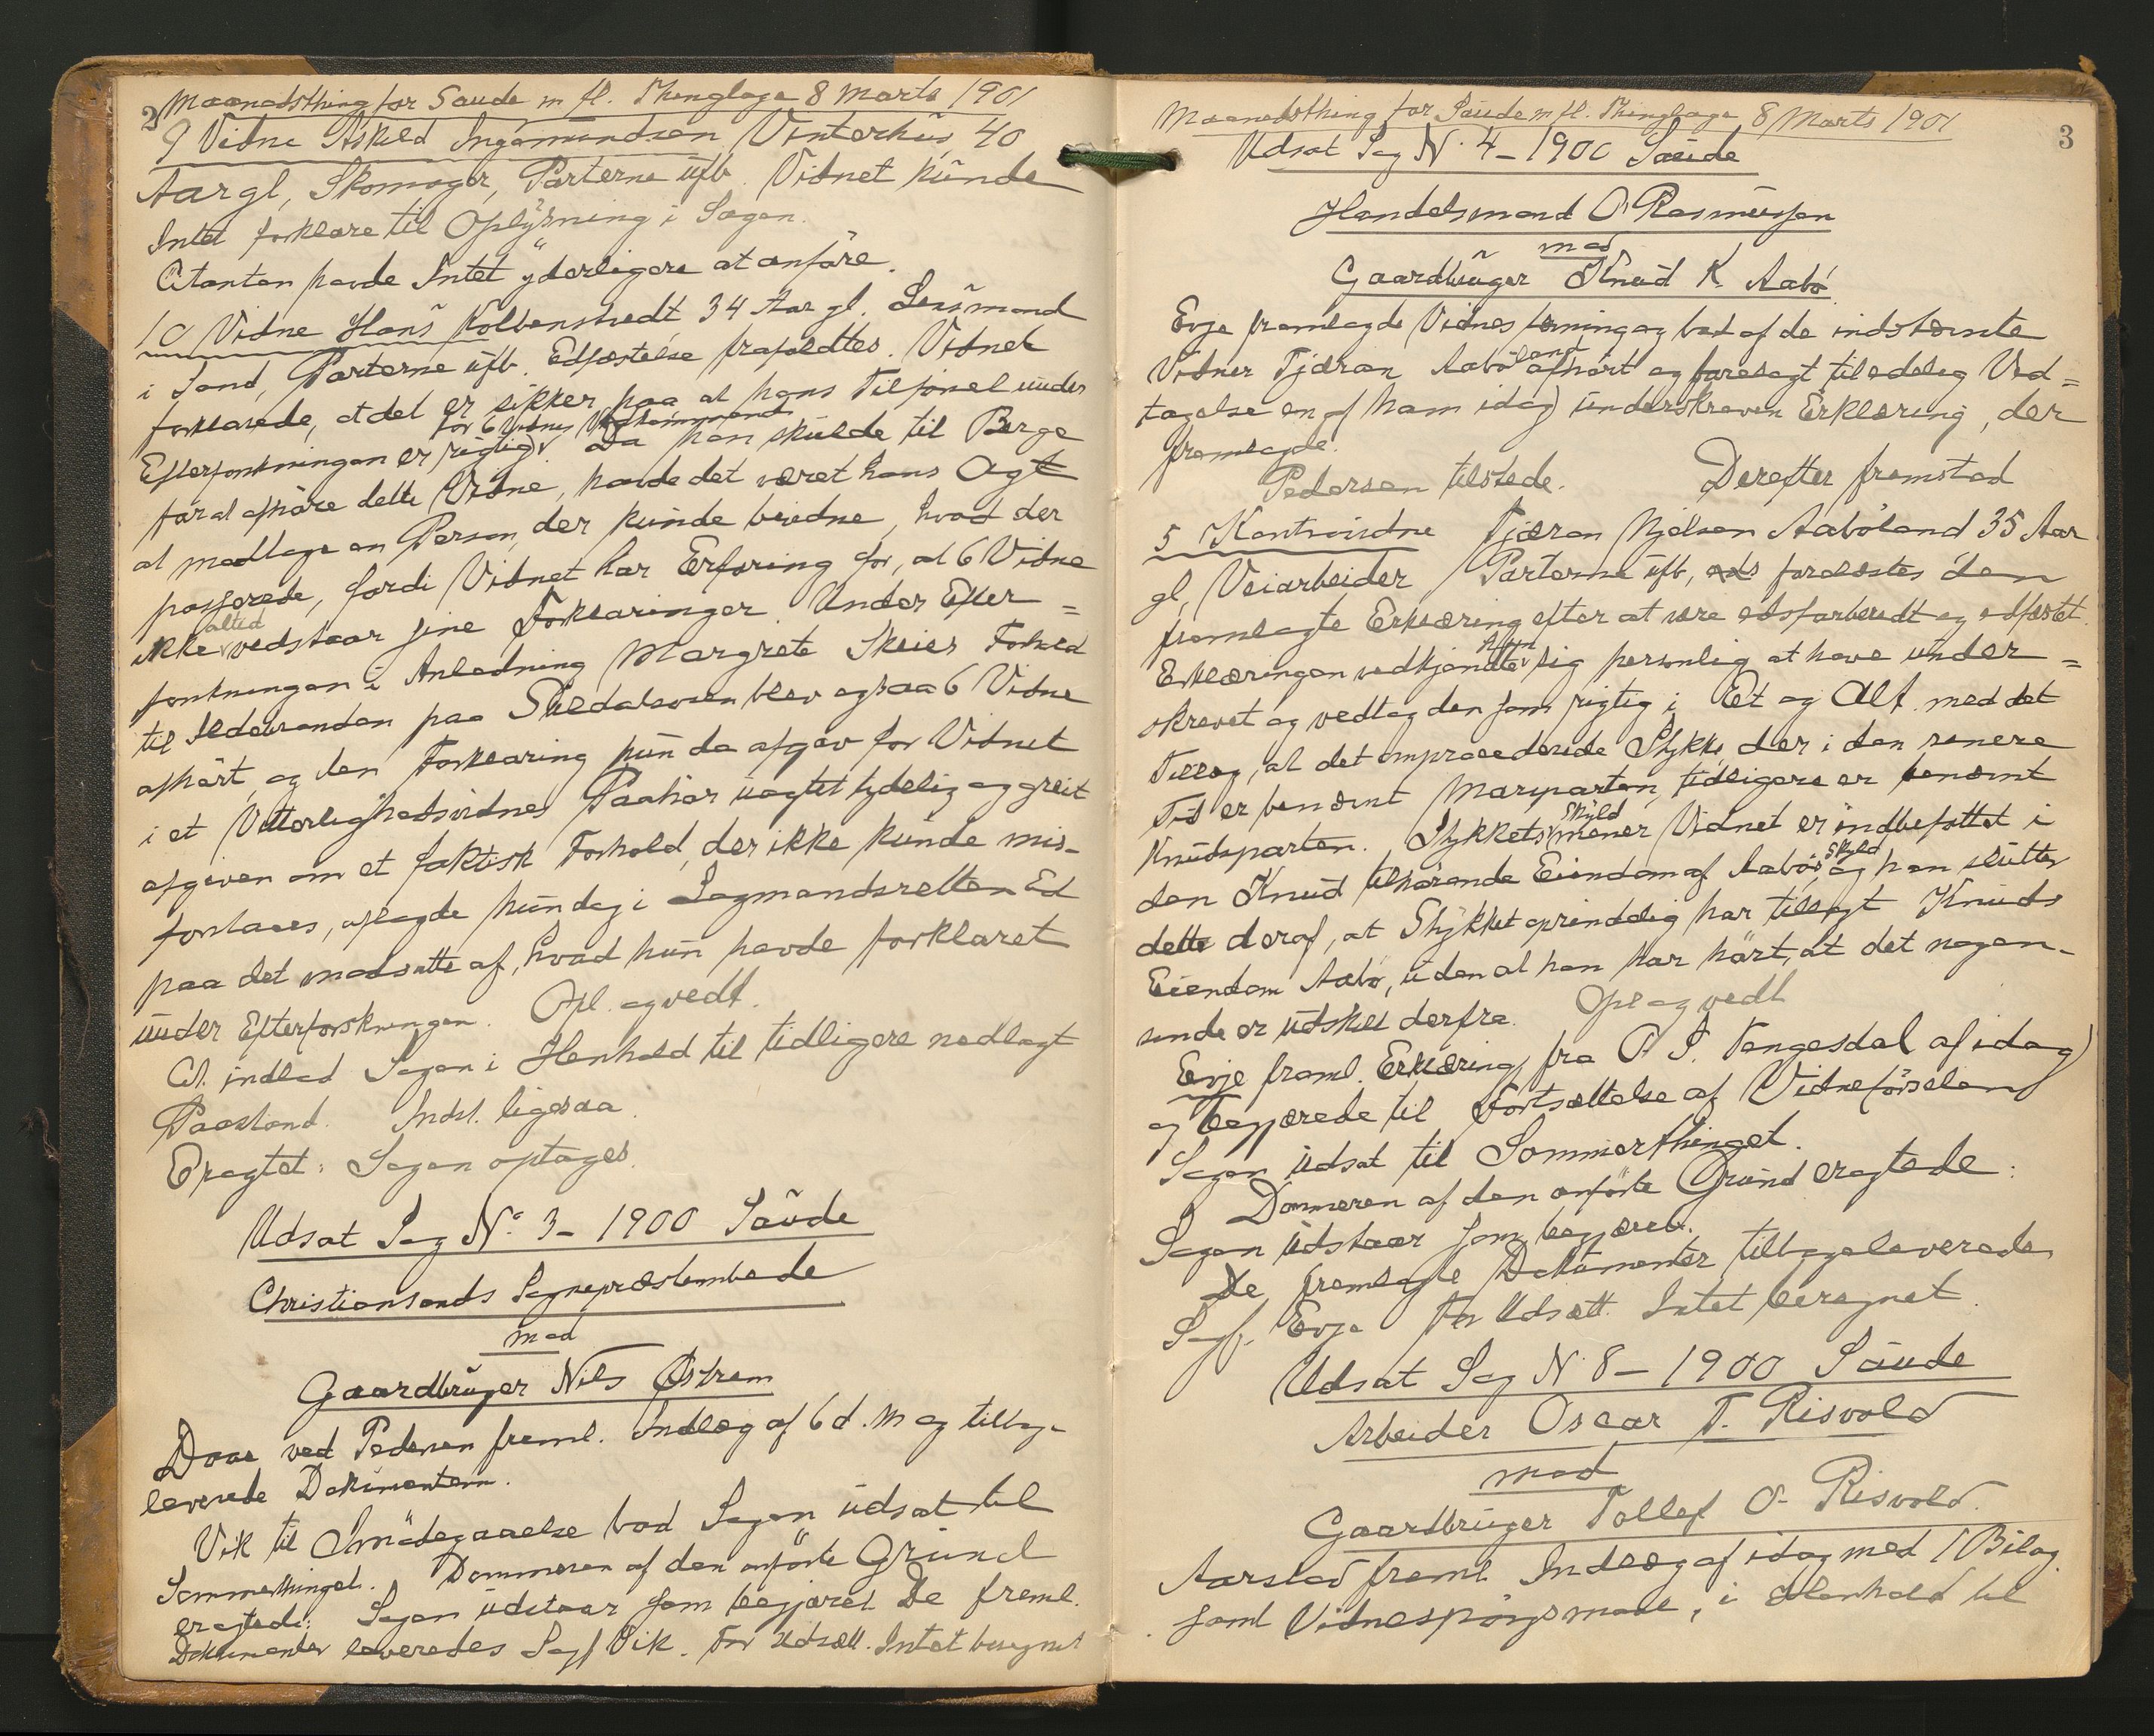 2 Maanedsthing for Saude m fl. Thinglage 8 Marts 1901
9 Vidne Askild Ingemundsen Vinterhus, 40
Aar gl, Skomager, Parterne üfb. Vidnet künde
Intet forklare til Oplysning i Sagen.
Citanten havde Intet yderligere at anføre.
10 Vidne Hans Kolbenstvedt 34 Aar gl. Lensmand
i Sand, Parterne üfb. Edfæstelse frafaldtes. Vidnet
forklarede, at det er sikker paa at hans Tilførsel ünder
for 6 Vidnes Vedkommende
Efterforskningen er rigtig. Da han skulde til Berge
for at afhøre dette Vidne, havde det været hans Agt
at medtage en Person, der künde bevidne, hvad der
passerede, fordi Vidnet har Erfaring for, at 6 Vidne
altid
ikke vedstaar sine Forklaringer. Under Efter=
forskningen i Anledning Margrete Skeies Forhold
til Ildebranden paa Suldalsosen blev ogsaa 6 Vidne
afhørt, og den Forklaring hün da afgav for Vidnet
i et Vitterlighedsvidnes Paahør üagtet tydelig og greit
afgiven om et faktisk Forhold, der ikke künde mis-
forstaaes, aflagde hün dog i Lagmandsretten Ed
paa det modsatte af, hvad hün havde forklaret
ünder Efterforskningen. Opl. og vedt.
Cit. indlod Sagen i Henhold til tidligere nedlagt
Paastand. Indst. ligesaa.
Eragtet: Sagen optages.
Udsat Sag No 3 - 1900 Saude
Christiansands Sognepræstembede
mod
Gaardbrüger Nils Østrem
Daae ved Pedersen freml. Indlæg af 6 d. M og tilbage-
leverede Dokumenterne.
Vik til Imødegaaelse bad Sagen üdsat til
Sommerthinget. Dommeren af den anførte Gründ
eragtede: Sagen üdstaar som begjæret. De freml.
Dokumenter leveredes Sagf Vik. For Udsætt. Intet beregnet
Maanedsthing for Saude m fl. Thinglage 8 Marts 1901
3
Udsat Sag N. 4 - 1900 Saude
Handelsmand O. Rasmüssen
mod
Gaardbrüger Knud K. Aabø
Evje fremlagde Vidnestævning og bad af de indstævnte
land
Vidner Tjæran Aabø afhørt og forelagt til edelig Ved=
tagelse en af ham idag ünderskreven Erklæring, der
fremlagde.
Pedersen tilstede. Derefter fremstod
5 Kontravidne Tjæran Njelsen Aabøland 35 Aar
gl, Veiarbeider, Parterne üfb, forelæstes den
fremlagte Erklæring efter at være edsforberedt og edfæstet.
Han
Erklæringen vedkjendte sig personlig at have ünder=
skrevet og vedtog den som rigtig i Et og Alt med det
Tillæg, at det omprocederede Stykke, der i den senere
Tid er benævnt Maryparten, tidligere er benævnt
Skyld
Knudsparten. Stykkets mener Vidnet er indbefattet i
Skyld
den Knud tilhørende Eiendom af Aabøs, og han slütter
dette deraf, at Stykket oprindelig har tilligt Knuds
Eiendom Aabø, üden at han har hørt, at det nogen-
sinde er üdskilt derfra. Opl og vedt
Evje freml. Erklæring fra O. S. Tengesdal af idag
og begjærede til Fortsættelse af Vidneførselen
Sagen üdsat til Sommerthinget.
Dommeren af den anførte Gründ eragtede:
Sagen üdstaar som begjæret.
De fremlagte Dokumenter tilbageleveredes
Sagf. Evje. For Udsætt. Intet beregnet.
Udsat Sag N. 8 - 1900 Saude
Arbeider Oscar T. Risvold
mod
Gaardbrüger Tollef O. Risvold.
Aarstad freml. Indlæg af idag med 1 Bilag
samt Vidnespørgsmaal, i Henhold til